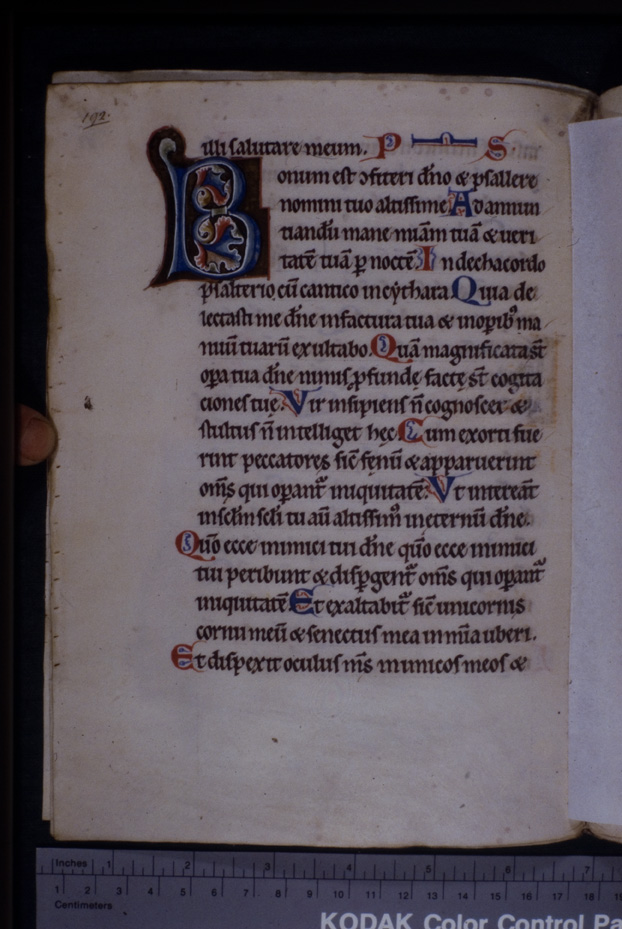 192.
illi salutare meum. P S
Bonum est ɔfiteri dn̄o & psallere
nomini tuo altissime Ad annun
tiandū mane mīam tuā & ueri
tatē tuā ꝑ noctē In dechacordo
psalterio, cū cantico in cẏthara. Quia de
lectasti me dn̄e in factura tua & in oꝑibꝰ ma
nuū tuarū exultabo. Quā magnificata st̄
oꝑa tua dn̄e nimis, ꝓfunde facte st̄ cogita
tiones tue. Vir insipiens n̄ cognoscet &
stultus n̄ intelliget hec. Cum exorti fue
rint peccatores sic̄ fenū & apparuerint
om̄s qui oꝑant᷑ iniquitatē. Vt intereāt
in sclm̄ scli tu aū altissimꝰ in eternū dn̄e.
Qūo ecce inimici tui dn̄e qūo ecce inimici
tui peribunt & dispgent᷑ om̄s qui oꝑant᷑
iniquitatē Et exaltabit᷑ sic̄ unicornis
cornu meū & senectus mea in mīa uberi.
Et dispexit oculus ms̄ inimicos meos &
Inches 1 2 3 4 5 6 7
1 2 3 4 5 6 7 8 9 10 11 12 13 14 15 16 17 18
Centimeters
KODAK Color Control Pa